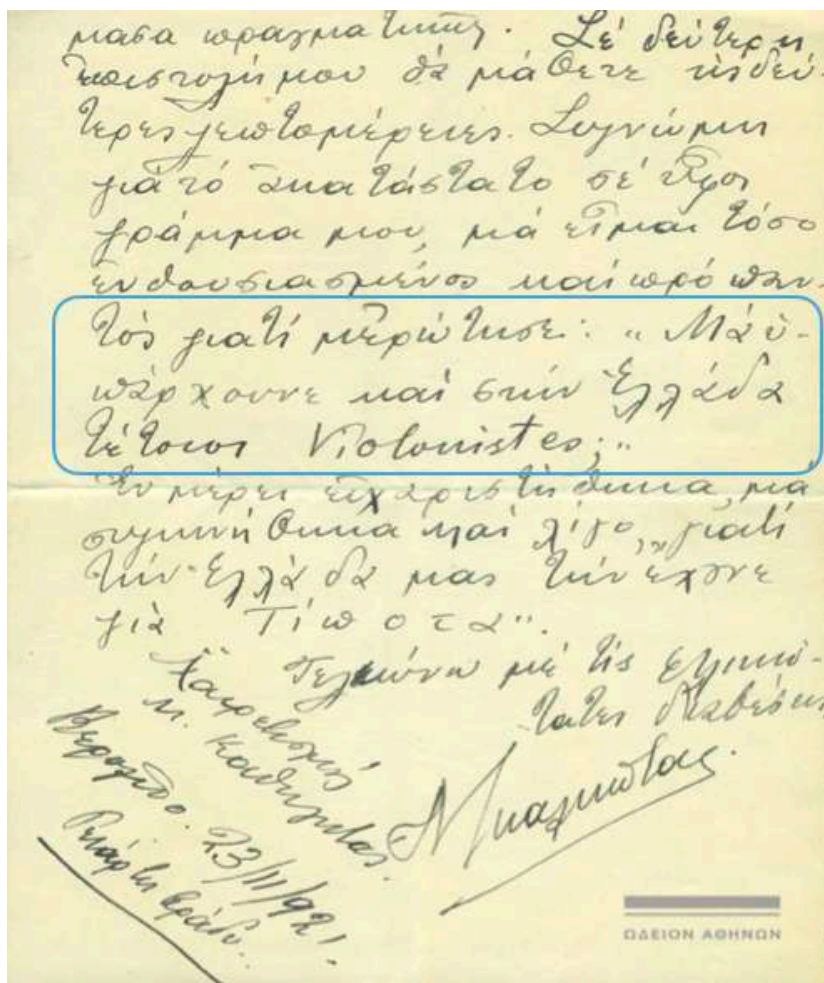 μασα πραγματικῶς. Σέ δεύτερη
ἐπιστολή μου θά μάθετε τίς δεύ-
τερες λεπτομέρειες. Συγνώμην
γιά τό ἀκατάστατο σέ ὕφος
γράμμα μου, μά εἶμαι τόσο
ἐνθουσιασμένος καί πρό παν-
τός γιατί μέ ρώτησε: „Μά ὑ-
πάρχουνε καί στήν Ἑλλάδα
τέτοιοι Violonistes;"
Ἐν μέρει εὐχαριστήθηκα, μά
συγκινήθηκα καί λίγο, γιατί
τήν Ἑλλάδα μας τήν ἔχουνε
γιά „Τίποτα".
Τελειώνω μέ τίς εἰλικρι-
τατες διαθέσεις
Χαιρετισμούς
κ. Καθηγητάς.
Βερολῖνο. 23/11/921.
Τετάρτη βράδυ.
Ν Σκαλκώτας.
ΩΔΕΙΟΝ ΑΘΗΝΩΝ